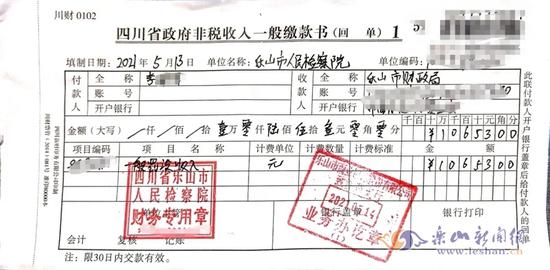 川财 0102
四川省政府非税收入一般缴款书(回 单) 1
填制日期:2021年5月13日 单位名称:乐山市人民检察院
付款人 全称 李
账号
开户银行
收款人 全称 乐山市财政局
账号
开户银行
金额(大写) 仟 佰 拾 壹万 零仟 陆佰 伍拾 叁元 零角 零分
千 百 十 万 千 百 十 元 角 分
¥ 1 0 6 5 3 0 0
项目编码 项目名称 计费单位 计费数量 计费标准 金额
罚没收入 元 ¥ 1 0 6 5 3 0 0
四川省乐山市
人民检察院
财务专用章
2021.05.14
业务办讫章
银行盖章 银行打印
会计 复核 记账
注:限30日内交款有效。
此联付款人开户银行盖章后给付款人的回单
乐山新闻网
www.leshan.cn